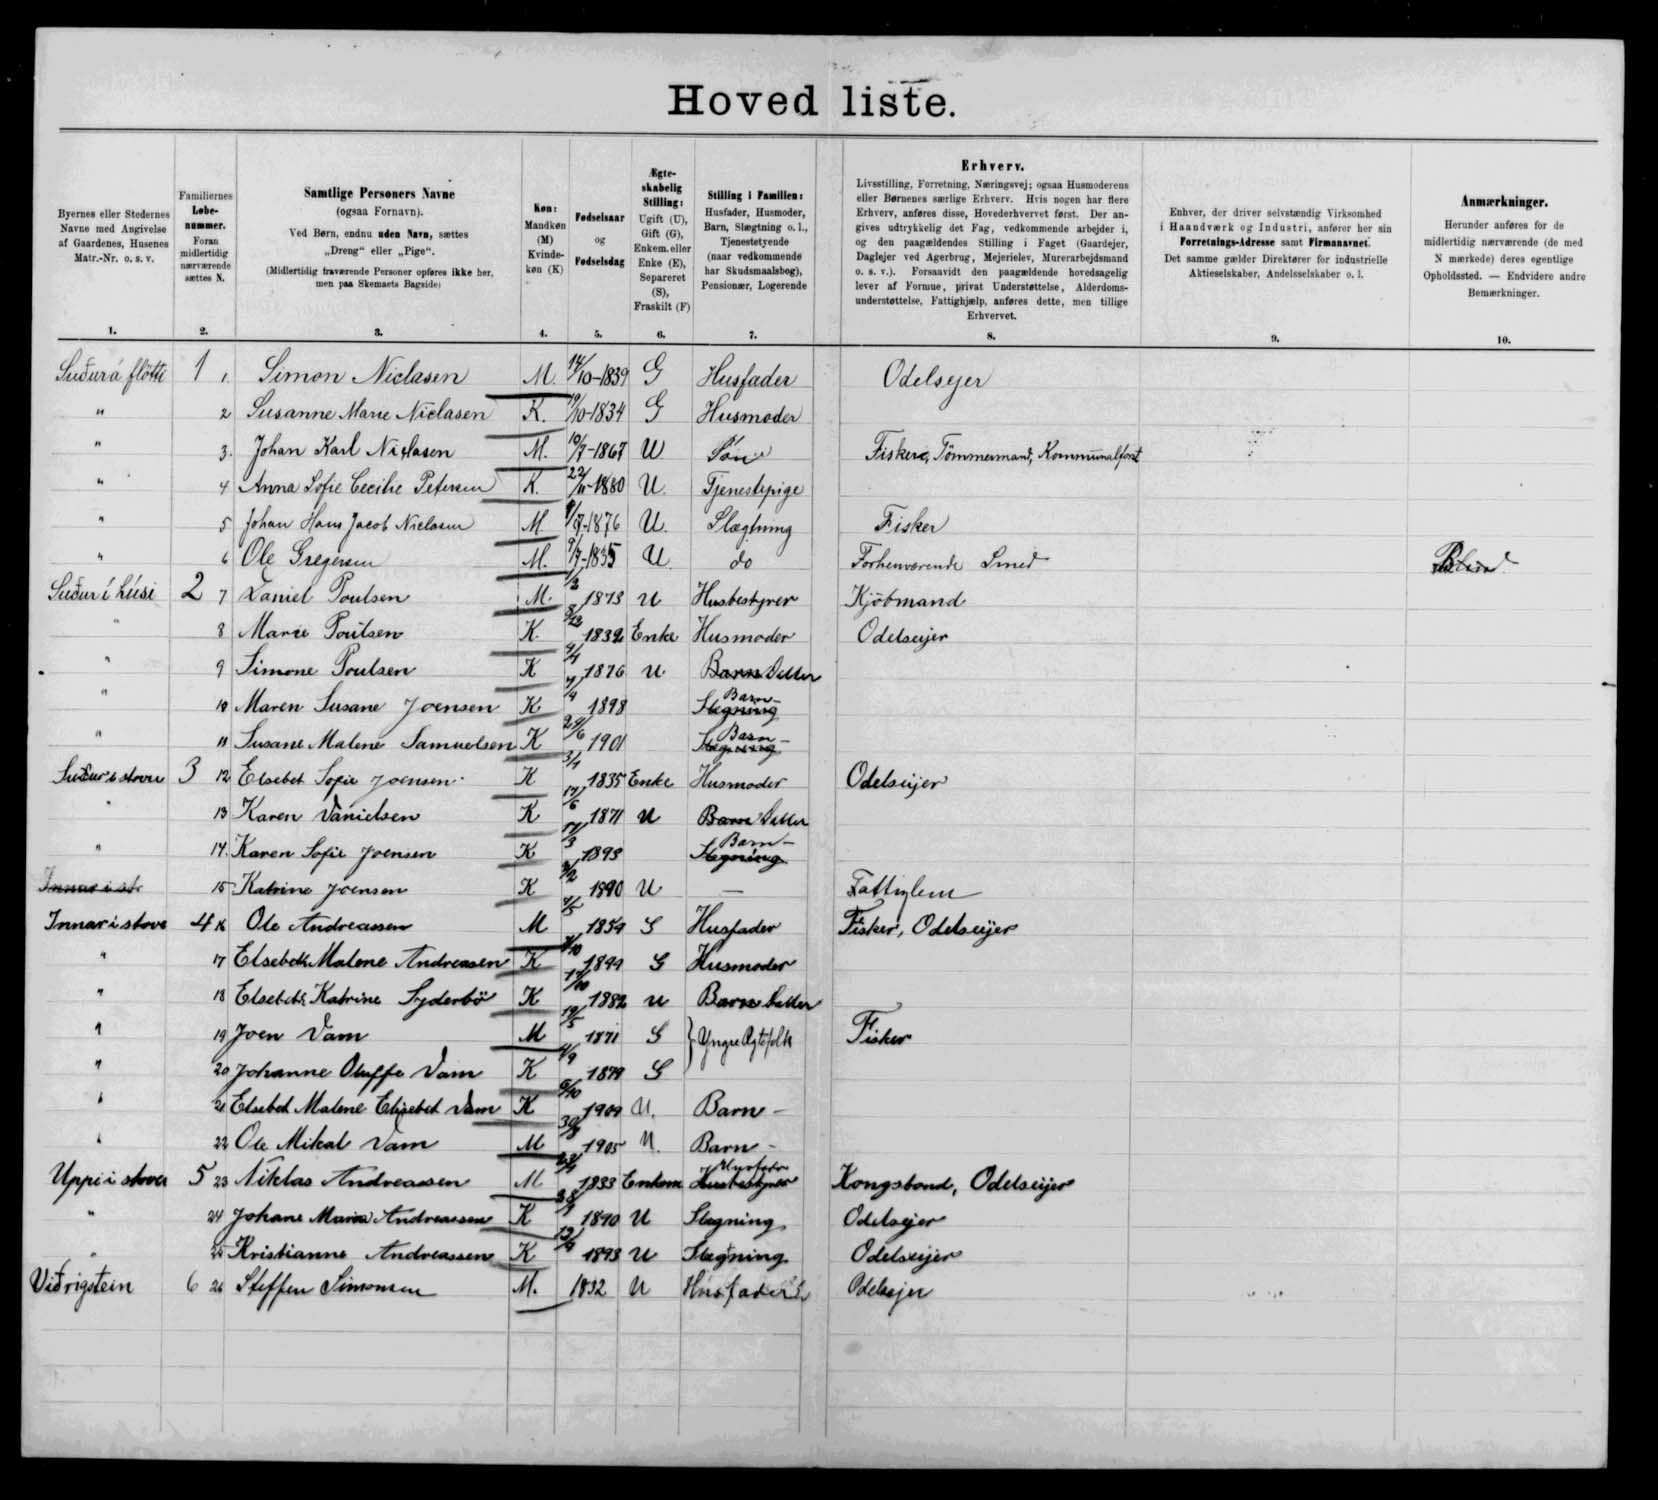 Hoved liste.
Byernes eller Stedernes
Navne med Angivelse
af Gaardenes, Husenes
Matr.-Nr. o. s. v.
1.
Familiernes
Løbe-
nummer.
Foran
midlertidig
nærværende
sættes N.
2.
Samtlige Personers Navne
(ogsaa Fornavn).
Ved Børn, endnu uden Navn, sættes
„Dreng“ eller „Pige“.
(Midlertidig fraværende Personer opføres ikke her,
men paa Skemaets Bagside)
3.
Køn:
Mandkøn
(M)
Kvinde-
køn (K)
4.
Fødselsaar
og
Fødselsdag
5.
Ægte-
skabelig
Stilling:
Ugift (U),
Gift (G),
Enkem. eller
Enke (E),
Separeret
(S),
Fraskilt (F)
6.
Stilling i Familien:
Husfader, Husmoder,
Barn, Slægtning o. l.,
Tjenestetyende
(naar vedkommende
har Skudsmaalsbog),
Pensionær, Logerende
7.
Erhverv.
Livsstilling, Forretning, Næringsvej; ogsaa Husmoderens
eller Børnenes særlige Erhverv. Hvis nogen har flere
Erhverv, anføres disse, Hovederhvervet først. Der an-
gives udtrykkelig det Fag, vedkommende arbejder i,
og den paagældendes Stilling i Faget (Gaardejer,
Daglejer ved Agerbrug, Mejerielev, Murerarbejdsmand
o. s. v.). Forsaavidt den paagældende hovedsagelig
lever af Formue, privat Understøttelse, Alderdoms-
understøttelse, Fattighjælp, anføres dette, men tillige
Erhvervet.
8.
Enhver, der driver selvstændig Virksomhed
i Haandværk og Industri, anfører her sin
Forretnings-Adresse samt Firmanavnet.
Det samme gælder Direktører for industrielle
Aktieselskaber, Andelsselskaber o. l.
9.
Anmærkninger.
Herunder anføres for de
midlertidig nærværende (de med
N mærkede) deres egentlige
Opholdssted. — Endvidere andre
Bemærkninger.
10.
Suðurá fløtti 1 1. Simon Niclasen M. 14/10-1839 G Husfader Odelsejer
" 2 Susanne Marie Niclasen K. /10-1834 G Husmoder
" 3. Johan Karl Niclasen M. 10/7-1867 U Søn Fisker, Tömmermand, Kommunalforst
" 4 Anna Sofie Cecilie Petersen K. 22/11-1880 U. Tjenestepige
" 5 Johan Hans Jacob Niclasen M /7-1876 U. Slægtning Fisker
" 6 Ole Gregersen M. 9/7-1835 U do Forhenværende Smed Blind
Suður í húsi 2 7 Daniel Poulsen M. 1873 U Husbestyrer Kjöbmand
" 8 Marie Poulsen K. 1832 Enke Husmoder Odelseijer
" 9 Simone Poulsen K 1876 U Barn Datter
" 10 Maren Susane Joensen K 1898 Slegning Barn
" 11 Susane Malene Samuelsen K 1901 Slegning Barn
Suður i stovu 3 12 Elsebet Sofie Joensen K 1835 Enke Husmoder Odelseijer
" 13 Karen Danielsen K 1871 U Barn Datter
" 14. Karen Sofie Joensen K 1893 Slegning Barn
Innar i st 15 Katrine Joensen K 1890 U — Fattiglem
Innar i stove 4 16 Ole Andreassen M 1854 G Husfader Fisker, Odelseijer
" 17 Elsebeth Malene Andreasen K 1849 G Husmoder
" 18 Elsebeth Katrine Syderbö K 1882 U Barn Datter
" 19 Joen Dam M 1871 G } Yngre Ægtefolk Fisker
" 20 Johanne Oluffe Dam K 1879 G
" 21 Elsebet Malene Elisebet Dam K 1904 U. Barn –
" 22 Ole Mikal Dam M 1905 U. Barn –
Uppi i stovu 5 23 Niklas Andreassen M 1833 Enkem Husbestyrer Husfader Kongsbond, Odelseijer
" 24 Johane Maria Andreassen K 1890 U Slegning Odelsejer
" 25 Kristianne Andreassen K 1893 U Slegtning Odelseijer
Viðrigstein 6 26 Steffen Simonsen M. 1832 U Husfader Odelsejer